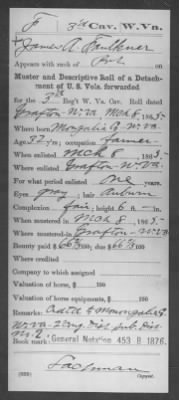 F 3d Cav. W. Va.
James A. Faulkner
Appears with rank of Pvt. on
Muster and Descriptive Roll of a Detach-
ment of U. S. Vols. forwarded
for the 3rd Reg't W. Va. Cav. Roll dated
Grafton W. Va Mch 8, 1865.
Where born Mongalia Co W. Va.
Age 32 y'rs; occupation Farmer
When enlisted Mch 8, 1865.
Where enlisted Grafton W. Va.
For what period enlisted one years.
Eyes gray; hair Auburn
Complexion fair; height 6 ft. – in.
When mustered in Mch 8, 1865.
Where mustered in Grafton W. Va.
Bounty paid $66 2/3 100; due $66 2/3 100
Where credited
Company to which assigned
Valuation of horse, $ 100
Valuation of horse equipments, $ 100
Remarks: Credtd to Monongalia Co
W. Va. 2 Cong Dist Sub Dis
No. 2
Book mark: General Notation 453 B 1876.
Copyist.